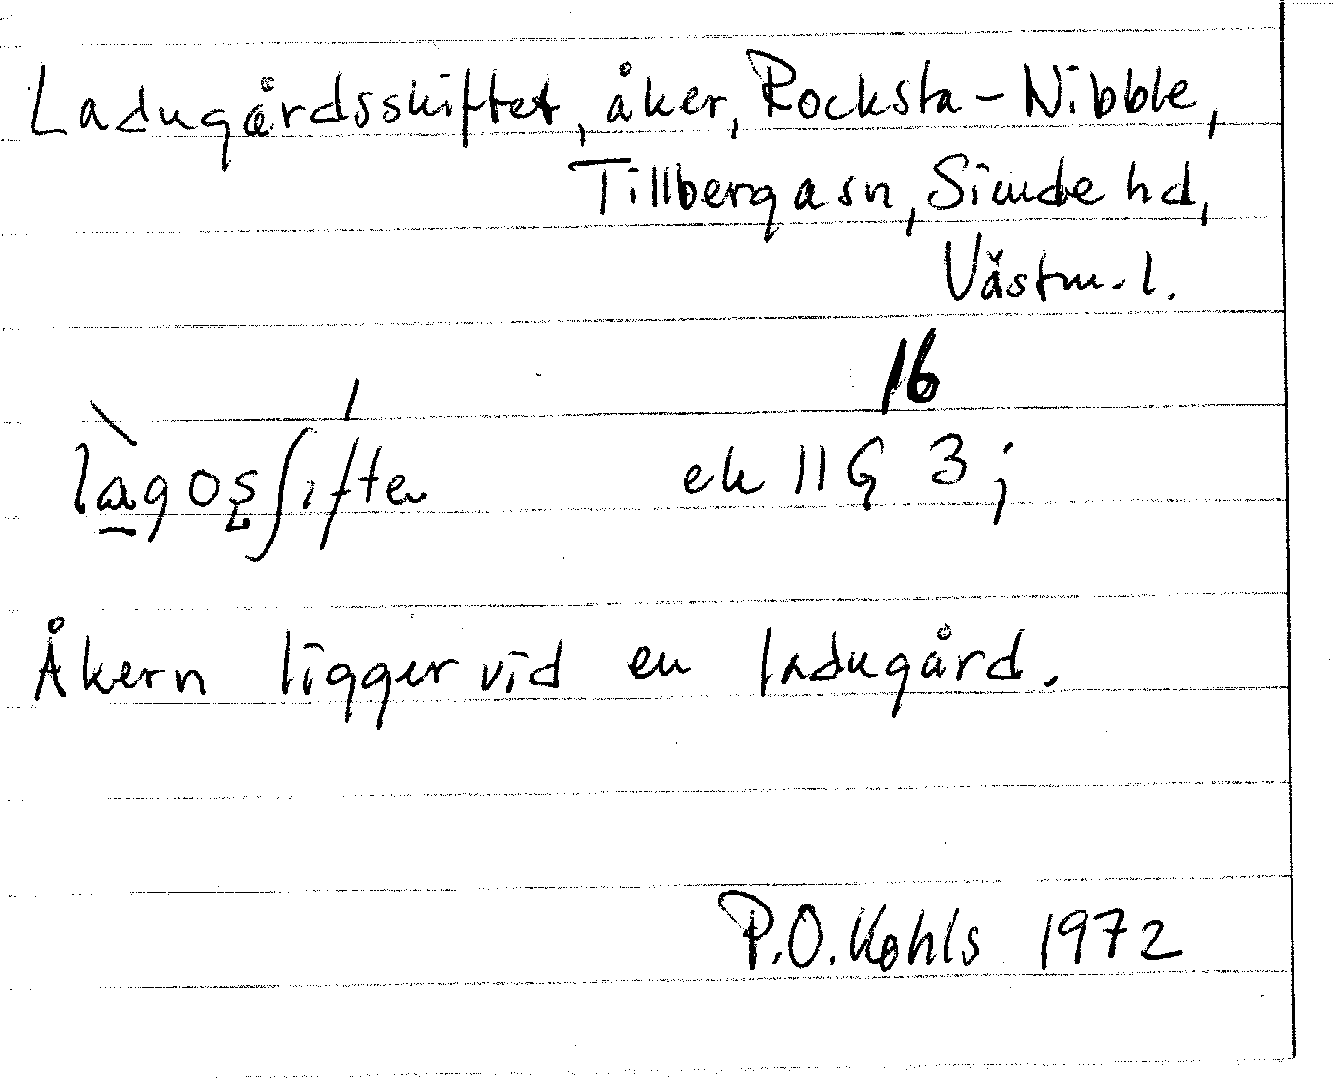 Ladugårdsskiftet, åker, Rocksta-Nibble,
Tillberga sn, Siende hd,
Västm. l.
16
làgosʃífte ek 11G 3j
Åkern ligger vid en ladugård.
P.O. Kohls 1972